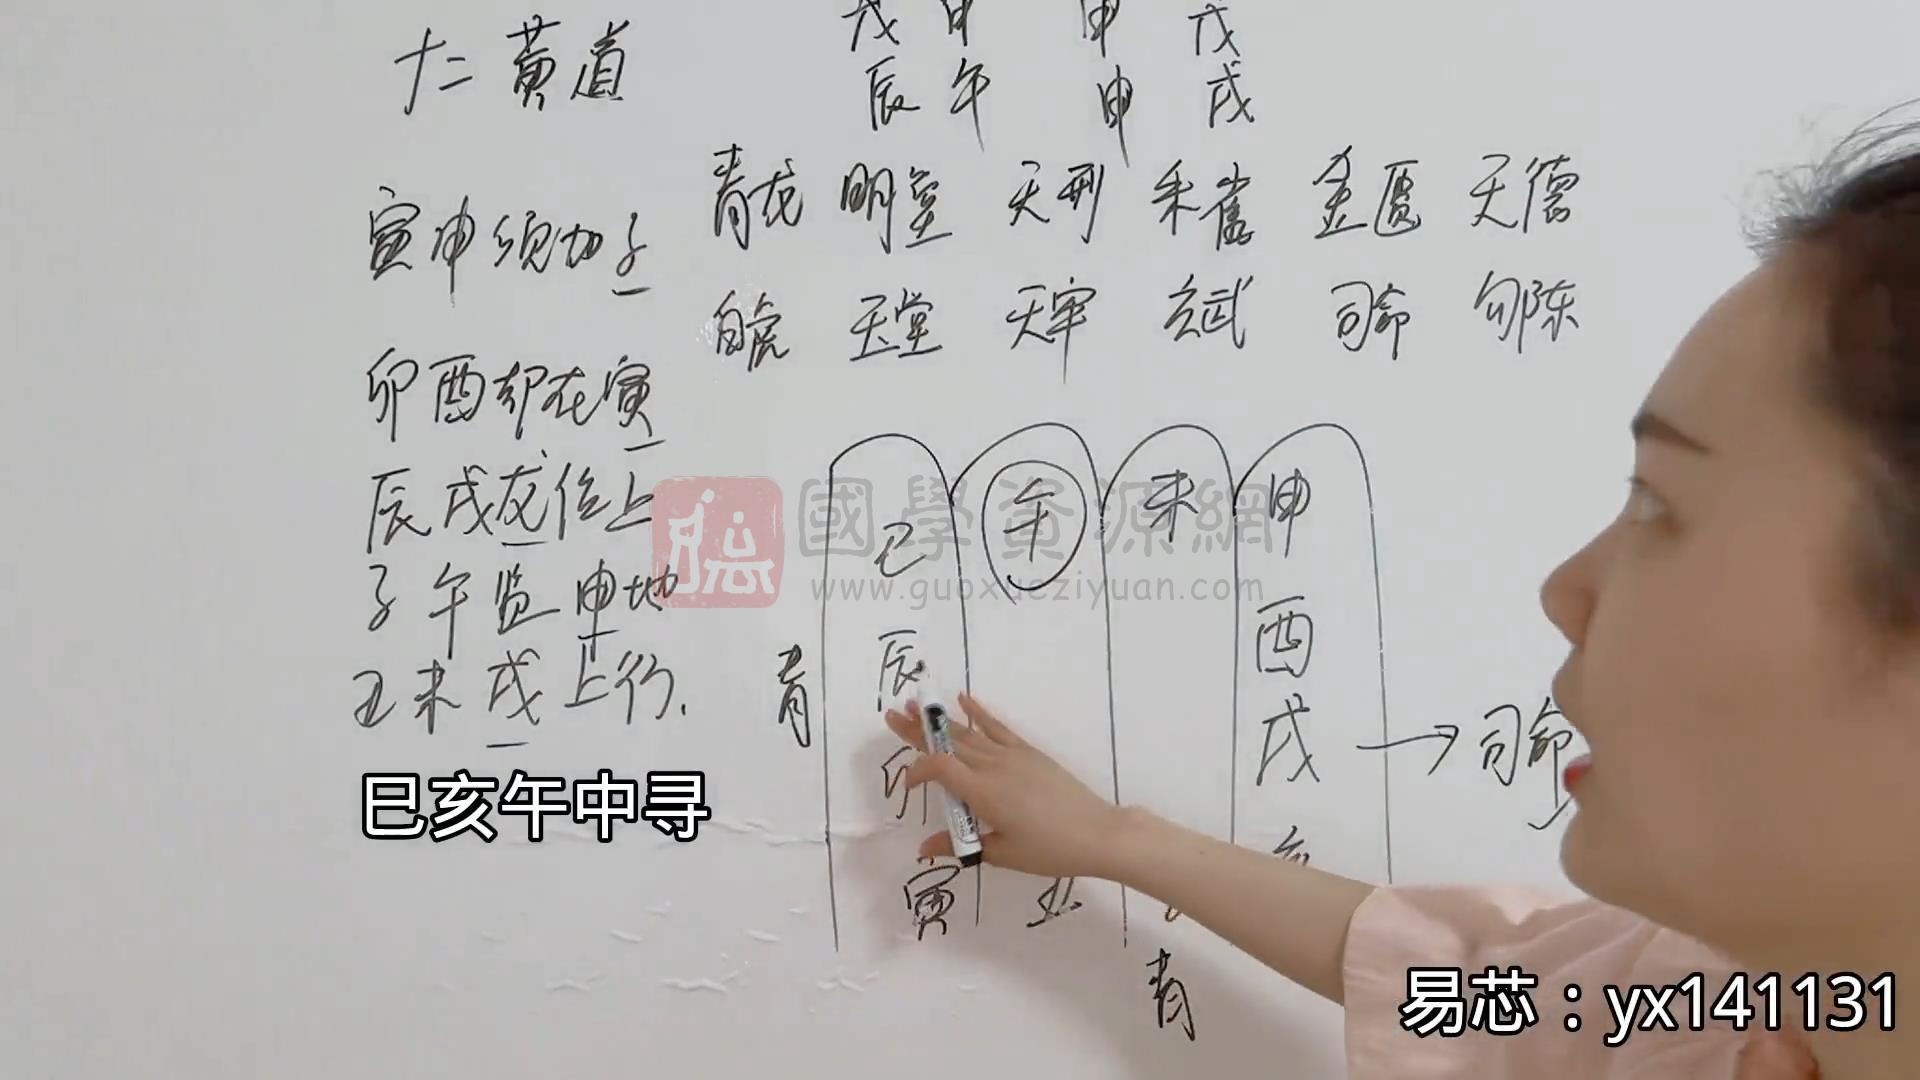 戊 甲 申 戊
辰 午 申 戌
十二黄道
青龙 明堂 天刑 朱雀 金匮 天德
寅申须加子
白虎 玉堂 天牢 玄武 司命 勾陈
卯酉却在寅
辰戌龙位上
子午览申地
丑未戌上行.
巳亥午中寻
巳 午 未 申
辰 酉
卯 戌 → 司命
寅 丑
青
青
國學資源網
www.guoxueziyuan.com
易芯：yx141131